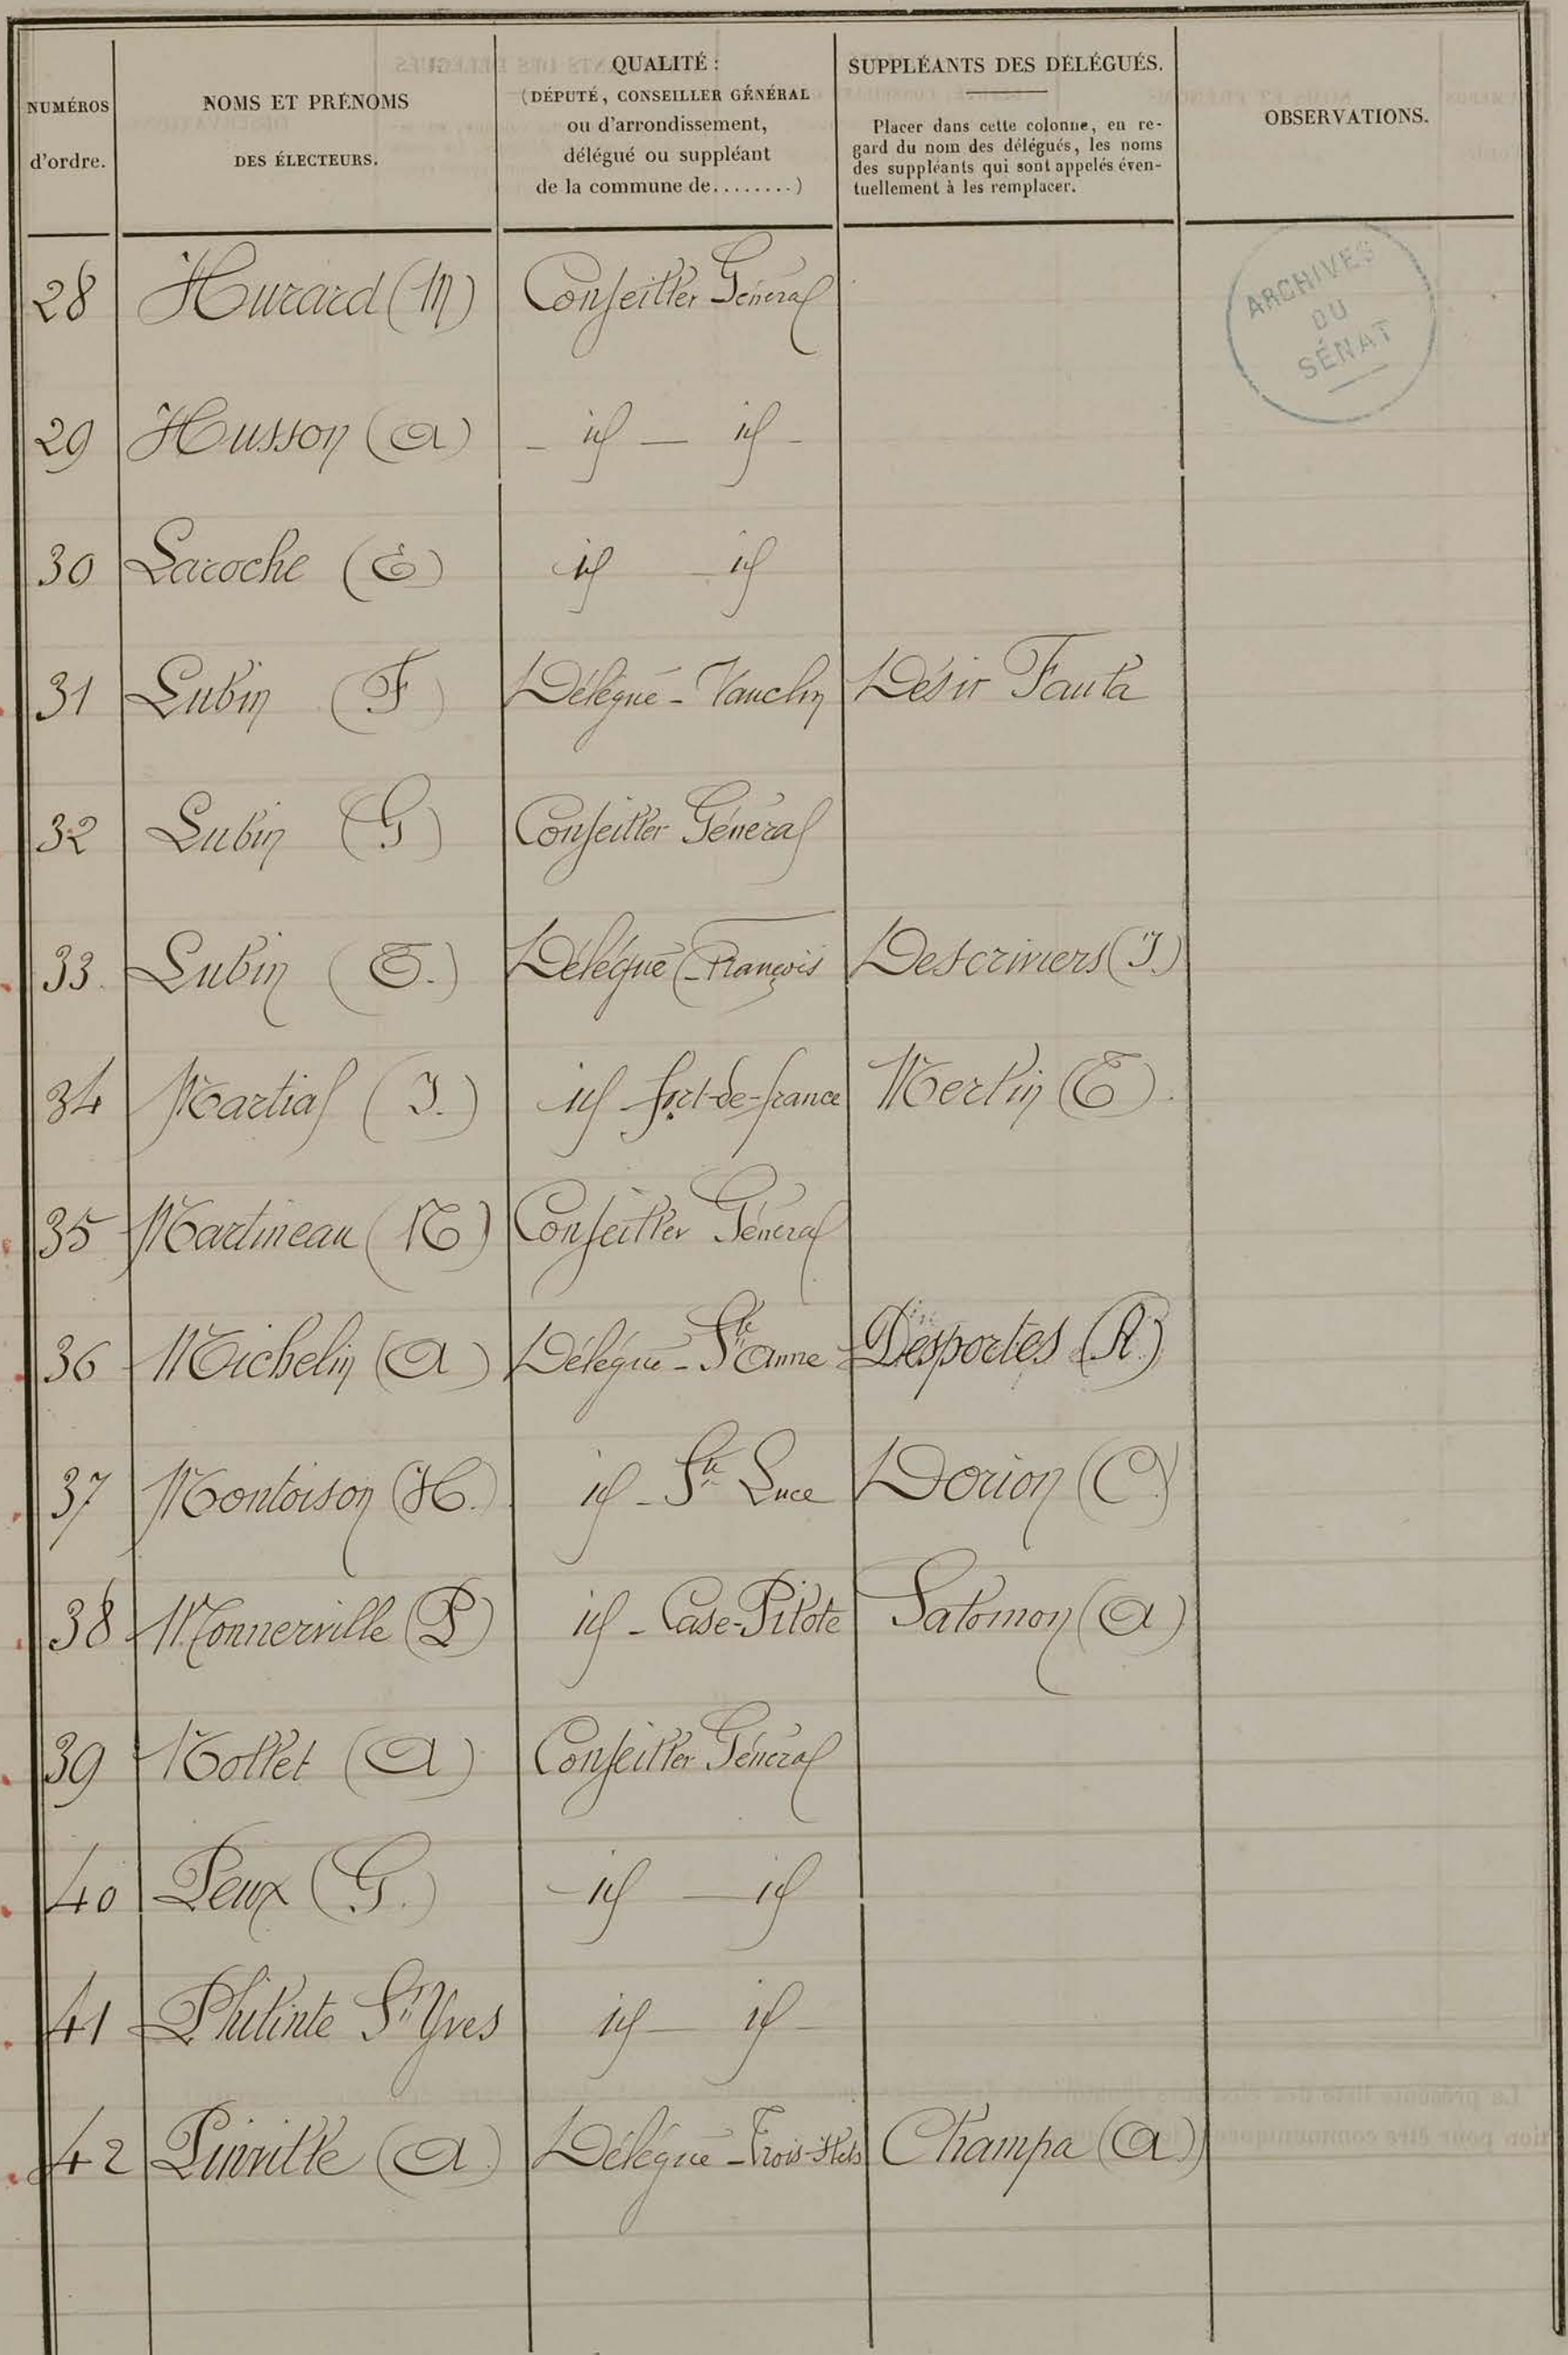 NUMÉROS d'ordre.
NOMS ET PRÉNOMS
DES ÉLECTEURS.
QUALITÉ :
(DÉPUTÉ, CONSEILLER GÉNÉRAL
ou d'arrondissement,
délégué ou suppléant
de la commune de........)
SUPPLÉANTS DES DÉLÉGUÉS.
Placer dans cette colonne, en re-
gard du nom des délégués, les noms
des suppléants qui sont appelés éven-
tuellement à les remplacer.
OBSERVATIONS.
ARCHIVES
DU
SÉNAT
28 Hurard (M) Conseiller Général
29 Husson (A) - id - id -
30 Laroche (E) id - id
31 Lubin (F) Délégué - Vauclin Désir Fauta
32 Lubin (G) Conseiller Général
33. Lubin (T.) Délégué - François Descriviers (J.)
34 Martial (J.) id fort-de-france Merlin (E)
35 Martineau (N) Conseiller Général
36 Michelin (A) Délégué - Ste Anne Desportes (R)
37 Montoison (H.) id - Ste Luce Dorion (C.)
38 Monnerville (P) id - Case-Pilote Salomon (A)
39 Nollet (A) Conseiller Général
40 Peux (G.) - id - id
41 Philinte St Yves id - id -
42 Pinville (A) Délégué - Trois-Ilets Champa (A)